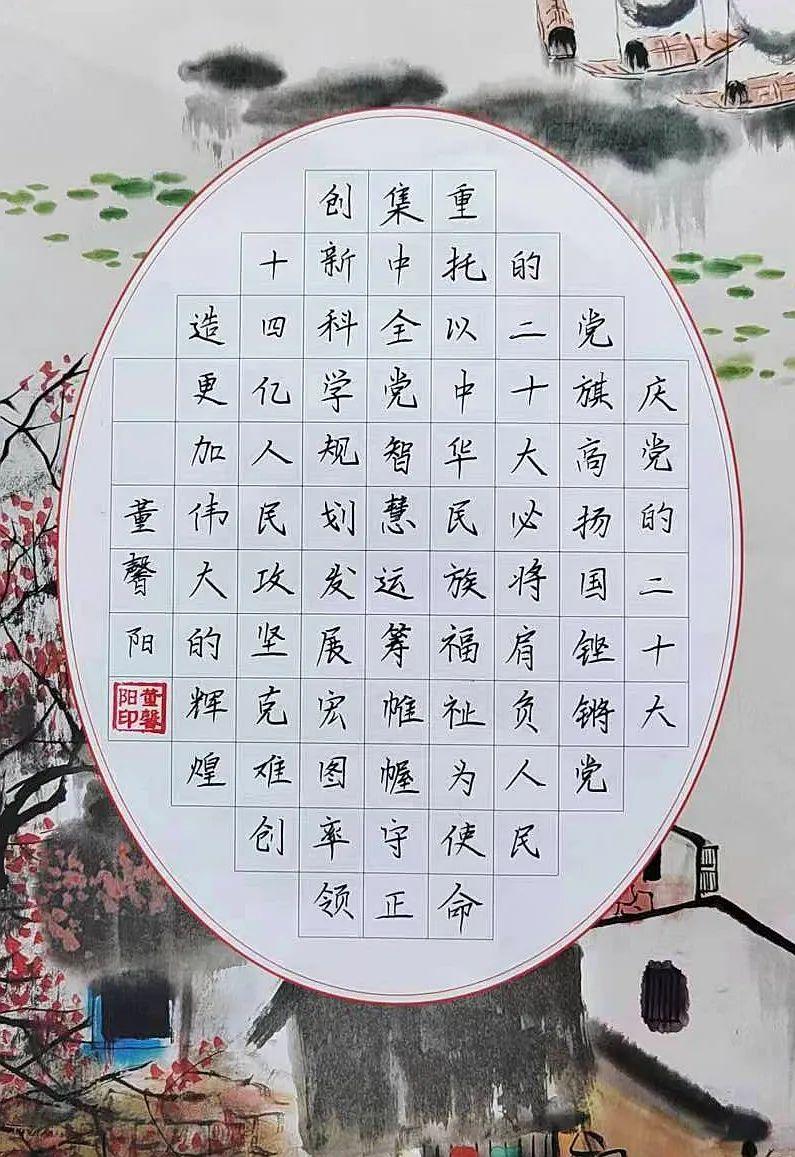 庆党的二十大
党旗高扬国铿锵党
的二十大必将肩负人民
重托以中华民族福祉为使命
集中全党智慧运筹帷幄守正
创新科学规划发展宏图率领
十四亿人民攻坚克难创
造更加伟大的辉煌
董馨阳
董馨
阳印